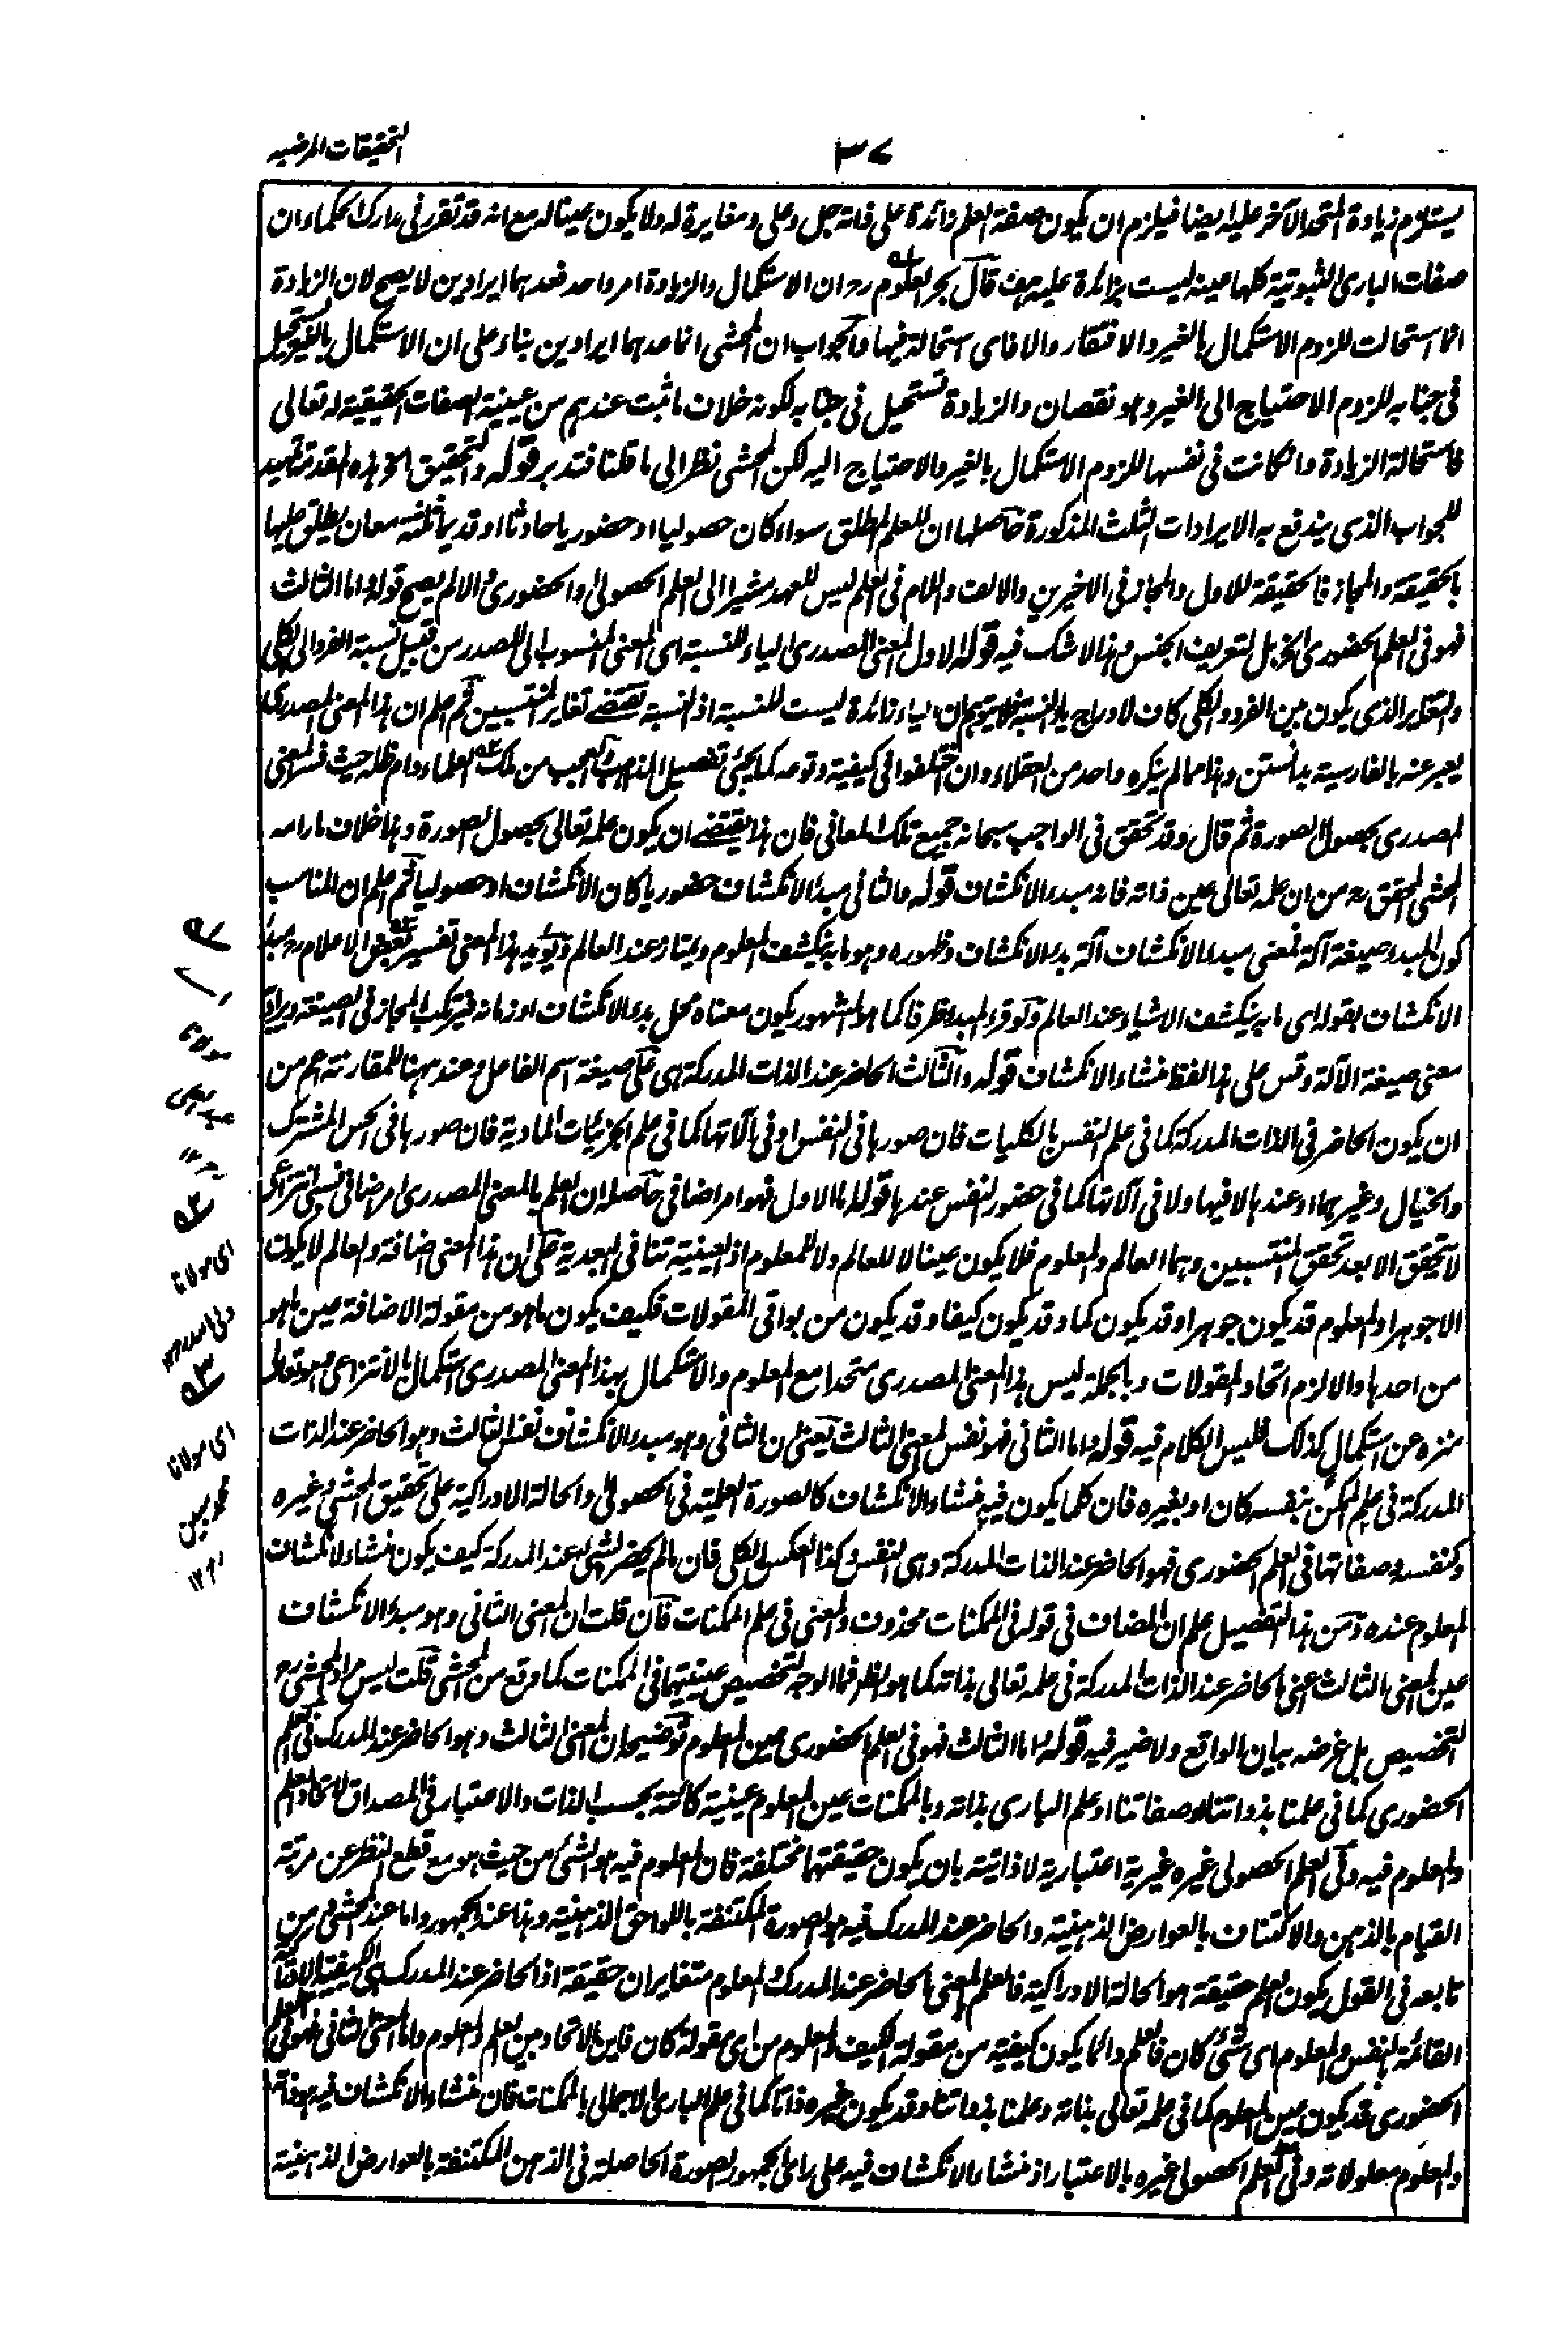 التحقيقات المرضيه
٣٧
يستلزم زيادة المتحد الآخر عليه ايضا فيلزم ان يكون صفة العلم زائدة على ذاته جل وعلى ومغايرة له ولا يكون عيناله مع انه قد تقرر فى مدارك الحكماء ان
صفات البارى الثبوتية كلها عينه ليست بزائدة عليه هف قال بحر العلوم رح ان الاستكمال والزيادة امر واحد فعدهما ايرادين لا يصح لان الزيادة
انما استحالت للزوم الاستكمال بالغير والافتقار والا فاى استحالة فيها والجواب ان المحشى انما عدهما ايرادين بناء على ان الاستكمال بالغير يستحيل
فى جنابه للزوم الاحتياج الى الغير وهو نقصان والزيادة تستحيل فى جنابه لكونه خلاف ما ثبت عندهم من عينية الصفات الحقيقية له تعالى
فاستحالة الزيادة وان كانت فى نفسها للزوم الاستكمال بالغير والاحتياج اليه لكن المحشى نظر الى ما قلنا فتدبر قوله والتحقيق الخ هذه المقدمة تمهيد
للجواب الذى يندفع به الايرادات الثلث المذكورة حاصلها ان للعلم المطلق سواء كان حصوليا او حضوريا حادثا او قديما ثلثة معان يطلق عليها
بالحقيقة والمجاز فالحقيقة للاول والمجاز فى الاخيرين والالف واللام فى العلم ليس للعهد مشيرا الى العلم الحصولى والحضورى والا لم يصح قوله واما الثالث
فهو فى العلم الحضورى الخ بل لتعريف الجنس وهذا لا شك فيه قوله الاول المعنى المصدرى الياء للنسبة اى المعنى المنسوب الى المصدر من قبيل نسبة الفرد الى الكلى
والتغاير الذى يكون بين الفرد والكلى كاف لادراج ياء النسبة فلا يتوهم ان الياء زائدة ليست للنسبة اذ النسبة تقتضى تغاير المنتسبين ثم اعلم ان هذا المعنى المصدرى
يعبر عنه بالفارسية بدانستن وهذا مما لم ينكره واحد من العقلاء وان اختلفوا فى كيفية وقوعه كما يجئ تفصيل المذاهب والعجب من ملك العلماء دام ظله حيث فسر المعنى
المصدرى بحصول الصورة ثم قال وقد تحقق فى الواجب سبحانه جميع تلك المعانى فان هذا يقتضى ان يكون علمه تعالى بحصول الصورة وهذا خلاف ما رامه
المحشى المحقق رح من ان علمه تعالى عين ذاته فانه مبدء الانكشاف قوله والثانى مبدء الانكشاف حضوريا كان الانكشاف او حصوليا ثم اعلم ان المناسب
كون المبدء صيغة آلة فمعنى مبدء الانكشاف آلة بدء الانكشاف وظهوره وهو ما به ينكشف المعلوم ويمتاز عند العالم ويؤيد هذا المعنى تفسير بعض الاعلام رح مبدء
الانكشاف بقوله اى ما به ينكشف الاشياء عند العالم ولو قرء المبدء ظرفا كما هو المشهور يكون معناه محل بدء الانكشاف او زمانه فيرتكب المجاز فى الصيغة ويراد
معنى صيغة الآلة وقس على هذا لفظ منشاء الانكشاف قوله والثالث الحاضر عند الذات المدركة هى على صيغة اسم الفاعل وعند ههنا للمقارنة اعم من
ان يكون الحاضر فى الذات المدركة كما فى علم النفس بالكليات فان صورها فى النفس او فى آلاتها كما فى علم الجزئيات المادية فان صورها فى الحس المشترك
والخيال وغيرهما او عندها لا فيها ولا فى آلاتها كما فى حضور النفس عندها قوله اما الاول فهو امر اضافى حاصله ان العلم بالمعنى المصدرى امر اضافى نسبى انتزاعى
لا يتحقق الا بعد تحقق المنتسبين وهما العالم والمعلوم فلا يكون عينا لا للعالم ولا للمعلوم اذ العينية تنافى البعدية على ان هذا المعنى اضافة والعالم لا يكون
الا جوهرا والمعلوم قد يكون جوهرا وقد يكون كما وقد يكون كيفا وقد يكون من بواقى المقولات فكيف يكون ما هو من مقولة الاضافة عين ما هو
من احدها والا لزم اتحاد المقولات وبالجملة ليس هذا المعنى المصدرى متحدا مع المعلوم والاستكمال بهذا المعنى المصدرى استكمال بالانتزاعى وهو تعالى
منزه عن استكمال كذلك فليس الكلام فيه قوله واما الثانى فهو نفس المعنى الثالث يعنى ان الثانى وهو مبدء الانكشاف نفس الثالث وهو الحاضر عند الذات
المدركة فى علم الممكن بنفسه كان او بغيره فان كلما يكون فيه منشاء الانكشاف كالصورة العلمية فى الحصولى والحالة الادراكية على تحقيق المحشى وغيره
وكنفسه وصفاتها فى العلم الحضورى فهو الحاضر عند الذات المدركة وهى النفس وكذا العكس الكلى فان ما لم يحضر الشئ عند المدركة كيف يكون منشاء لانكشاف
المعلوم عنده ومن هذا التفصيل علم ان المضاف فى قوله فى الممكنات محذوف والمعنى فى علم الممكنات فان قلت ان المعنى الثانى وهو مبدء الانكشاف
عين المعنى الثالث اعنى الحاضر عند الذات المدركة فى علمه تعالى بذاته كما هو الظاهر فما الوجه لتخصيص عينيتهما فى الممكنات كما وقع من المحشى قلت ليس مراد المحشى رح
التخصيص بل غرضه بيان الواقع ولا ضير فيه قوله واما الثالث فهو فى العلم الحضورى عين المعلوم توضيحه ان المعنى الثالث وهو الحاضر عند المدرك فى العلم
الحضورى كما فى علمنا بذواتنا وصفاتنا او علم البارى بذاته وبالممكنات عين المعلوم عينية كائنة بحسب الذات والاعتبار فى المصداق لاتحاد العلم
والمعلوم فيه وفى العلم الحصولى غيره غيرية اعتبارية لا ذاتية بان يكون حقيقتهما مختلفة فان المعلوم فيه هو الشئ من حيث هو مع قطع النظر عن مرتبة
القيام بالذهن والاكتناف بالعوارض الذهنية والحاضر عند المدرك فيه هو الصورة المكتنفة باللواحق الذهنية وهذا عند الجمهور واما عند المحشى ومن
تابعه فى القول يكون العلم حقيقة هو الحالة الادراكية فالعلم بمعنى الحاضر عند المدرك والمعلوم متغايران حقيقة اذ الحاضر عند المدرك هى الكيفية الادراكية
القائمة بالنفس والمعلوم اى شئ كان فالعلم دائما يكون كيفية من مقولة الكيف والمعلوم من اى مقولة كان فاين الاتحاد بين العلم والمعلوم واما المعنى الثانى فهو فى العلم
الحضورى قد يكون عين المعلوم كما فى علمه تعالى بذاته وعلمنا بذواتنا وقد يكون غيره ذاتا كما فى علم البارى الاجمالى بالممكنات فان منشاء الانكشاف فيه هو ذاته
والمعلوم معلولاته وفى العلم الحصولى غيره بالاعتبار اذ منشاء الانكشاف فيه على راى الجمهور الصورة الحاصلة فى الذهن المكتنفة بالعوارض الذهنية
مولانا
عبد العلى
رح ١٢
اى مولانا
ولى الله رح ١٢
اى مولانا
محمد مبين
رح ١٢